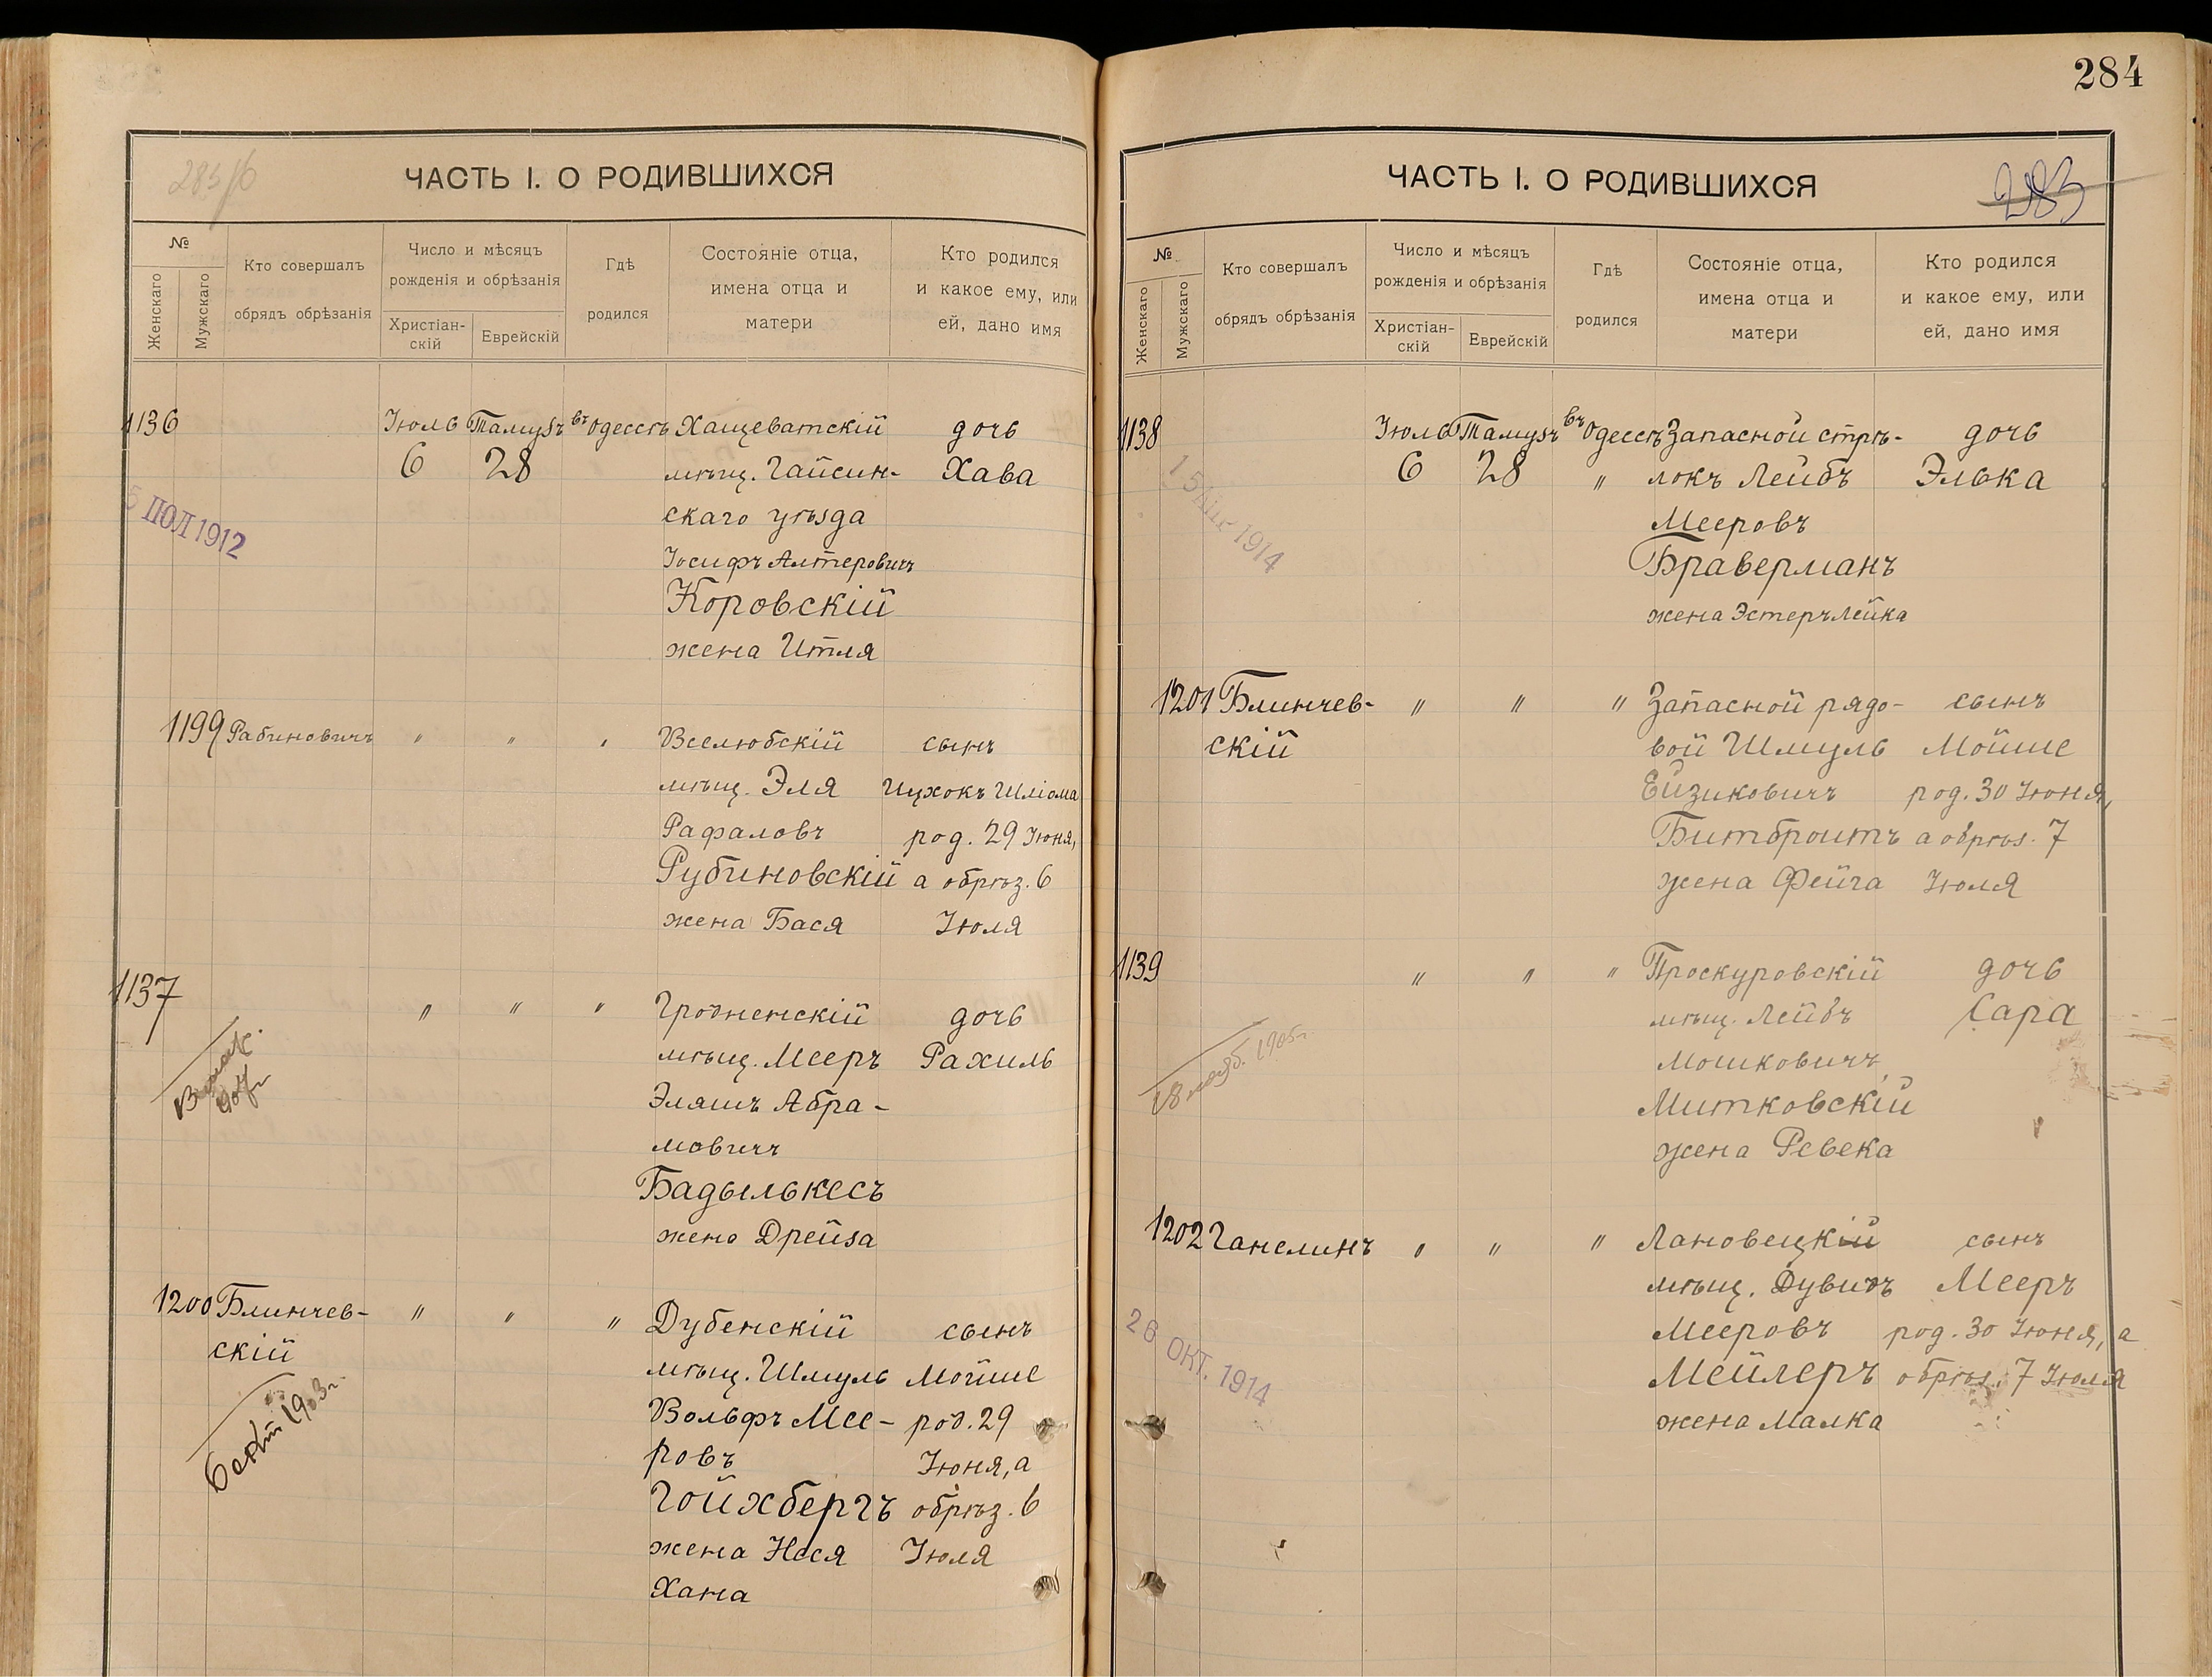 284
ЧАСТЬ I. О РОДИВШИХСЯ
№
Женскаго
Мужскаго
Кто совершалъ
обрядъ обрѣзанія
Число и мѣсяцъ
рожденія и обрѣзанія
Христіан-
скій
Еврейскій
Гдѣ
родился
Состояніе отца,
имена отца и
матери
Кто родился
и какое ему, или
ей, дано имя
1136 Іюль Тамузъ въ Одессѣ Хащеватскій дочь
6 28 мѣщ. Гайсин- Хава
скаго уѣзда
ІЮЛ 1912
Іосифъ Алтеровичъ
Коровскій
жена Итля
1199 Рабиновичъ " " " Вселюбскій сынъ
мѣщ. Эля Ицхокъ Шліома
Рафаловъ род. 29 Іюня,
Рубиновскій а обрѣз. 6
жена Бася Іюля
1137 " " " Гродненскій дочь
мѣщ. Мееръ Рахиль
Эляшъ Абра-
мовичъ
Бадылькесъ
жена Дрейза
1200 Блинчев- " " " Дубенскій сынъ
скій мѣщ. Шмуль Мойше
Вольфъ Мее- род. 29
ровъ Іюня, а
6 1903 г.
Гойхбергъ обрѣз. 6
жена Нася Іюля
Хана
ЧАСТЬ I. О РОДИВШИХСЯ
283
№
Женскаго
Мужскаго
Кто совершалъ
обрядъ обрѣзанія
Число и мѣсяцъ
рожденія и обрѣзанія
Христіан-
скій
Еврейскій
Гдѣ
родился
Состояніе отца,
имена отца и
матери
Кто родился
и какое ему, или
ей, дано имя
1138 Іюль Тамузъ въ Одессѣ Запасной стрѣ- дочь
6 28 " локъ Лейбъ Элька
Мееровъ
1914
Браверманъ
жена Эстеръ Лейка
1201 Блинчев- " " " Запасной рядо- сынъ
скій вой Шмуль Мойше
Ейзиковичъ род. 30 Іюня,
Битбройтъ а обрѣз. 7
жена Фейга Іюля
1139 " " " Проскуровскій дочь
мѣщ. Лейбъ Сара
Мошковичъ
18 нояб. 1905 г.
Митковскій
жена Ревека
1202 Ганелинъ " " " Лановецкій сынъ
мѣщ. Дувидъ Мееръ
Мееровъ род. 30 Іюня, а
26 ОКТ. 1914
Мейлеръ обрѣз. 7 Іюля
жена Малка